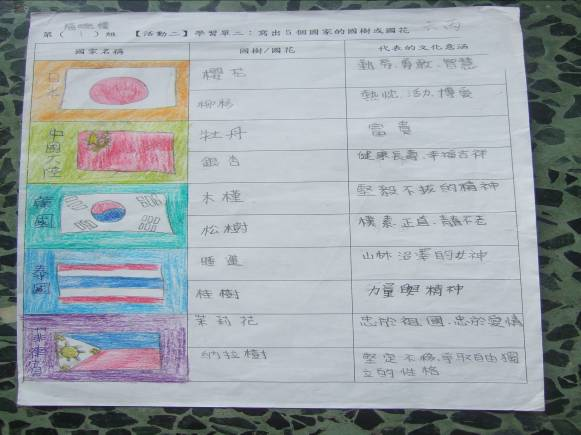 第（1）組 【活動二】學習單二：寫出5個國家的國樹或國花
國家名稱 國樹/國花 代表的文化意涵
日本 櫻花 勤勞、勇敢、智慧
柳杉 熱忱、活力、博愛
中國大陸 牡丹 富貴
銀杏 健康長壽、幸福吉祥
韓國 木槿 堅毅不拔的精神
松樹 樸素、正直、青春不老
泰國 睡蓮 山林沼澤的女神
桂樹 力量與精神
菲律賓 茉莉花 忠於祖國、忠於愛情
納拉樹 堅定不移、爭取自由獨
立的性格